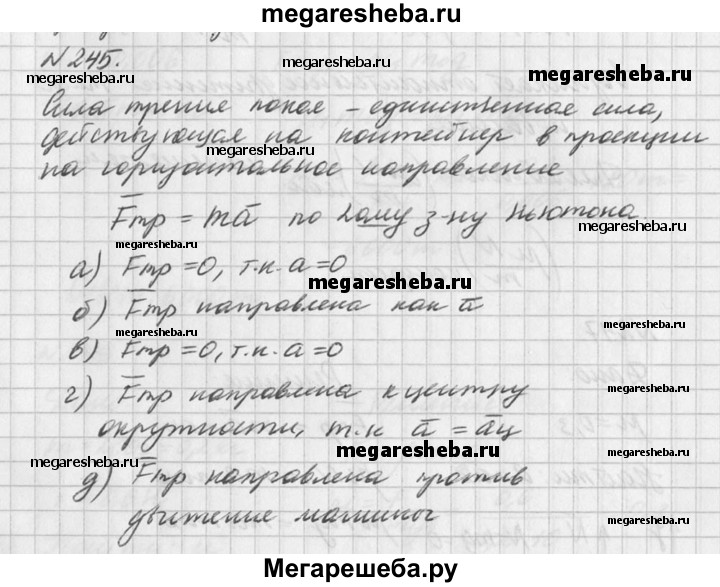 megaresheba.ru
N 245.
megaresheba.ru megaresheba.ru megaresheba.ru
Сила трения покоя – единственная сила,
действующая на контейнер в проекции
megaresheba.ru megaresheba.ru
на горизонтальное направление
Fтр = ma по 2ому з-ну Ньютона.
megaresheba.ru
megaresheba.ru
а) Fтр = 0, т.к. a = 0
megaresheba.ru
б) Fтр направлена как a
megaresheba.ru megaresheba.ru
в) Fтр = 0, т.к. a = 0
megaresheba.ru
г) Fтр направлена к центру
megaresheba.ru
окружности, т.к a = aц
megaresheba.ru megaresheba.ru
д) Fтр направлена против
движение машины
megaresheba.ru
Мегарешеба.ру